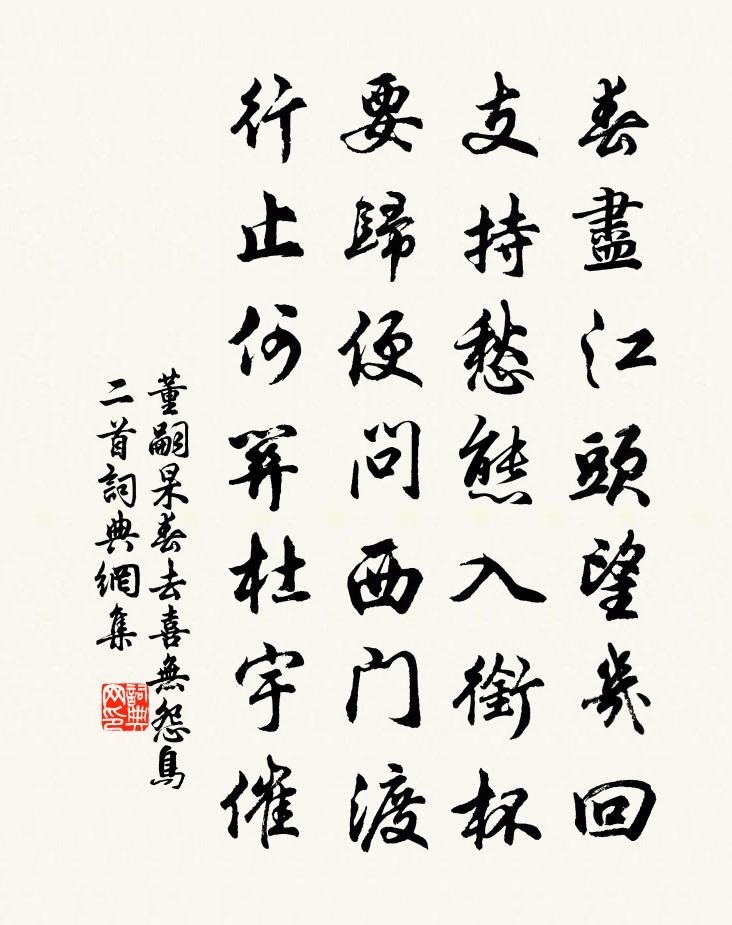 春盡江頭望幾回
支持愁態入銜杯
要歸便問西門渡
行止何算杜宇催
董嗣杲春去喜無怨鳥
二首詞典網集
詞典网印